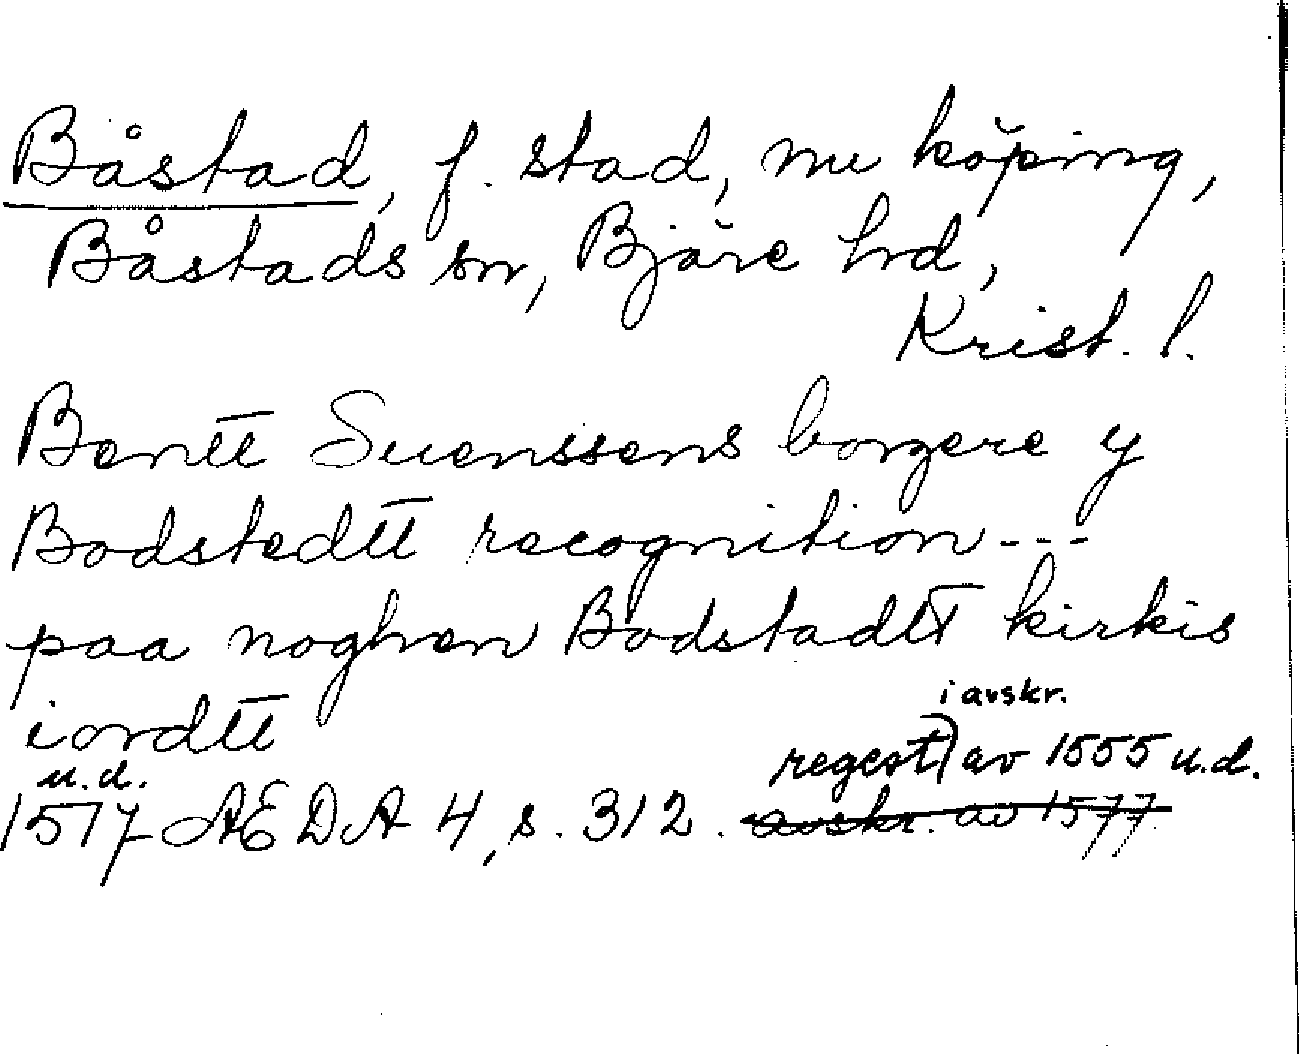 Båstad, f. stad, nu köping,
Båstads sn, Bjäre hd,
Krist. l.
Bentt Suenssens borgere y
Bodstedtt recognition---
paa noghen Bodstadtt kirkis
iordtt
i avskr.
regest) av 1555 u.d.
u.d.
1517 AEDA 4, s. 312. avskr. av 1577.